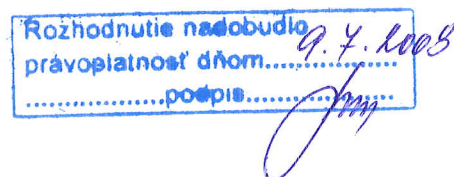 Rozhodnutie nadobudlo
právoplatnosť dňom 9.7.2008
podpis